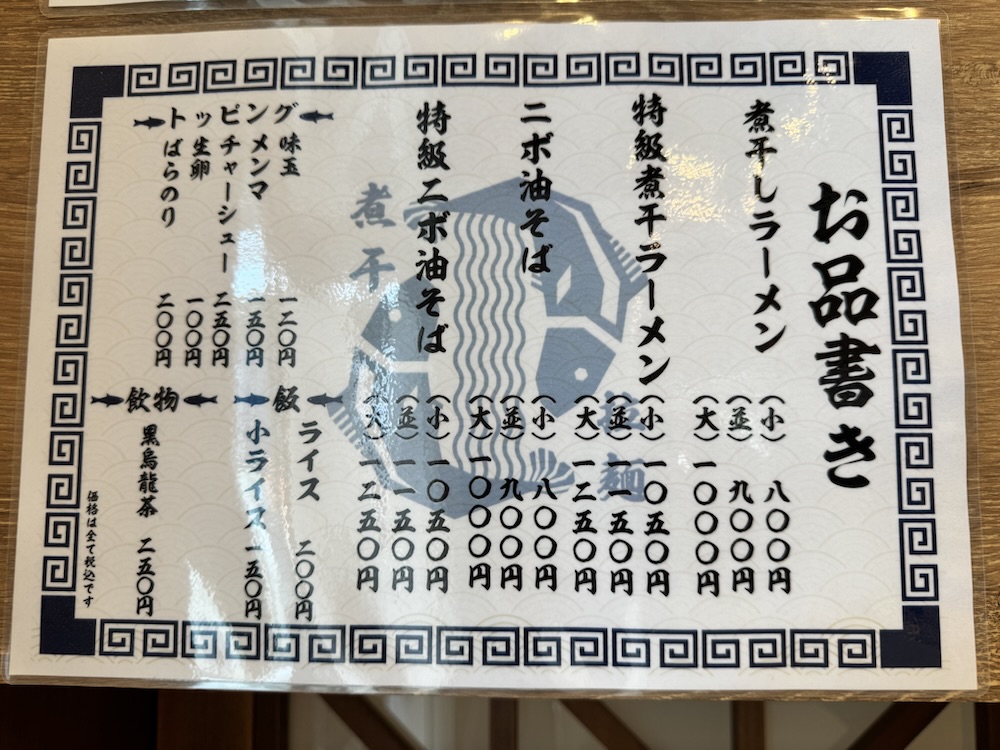 お品書き
煮干しラーメン
(小) 八〇〇円
(並) 九〇〇円
(大) 一〇〇〇円
特級煮干ラーメン
(小) 一〇五〇円
(並) 一一五〇円
(大) 一二五〇円
ニボ油そば
(小) 八〇〇円
(並) 九〇〇円
(大) 一〇〇〇円
特級ニボ油そば
(小) 一〇五〇円
(並) 一一五〇円
(大) 一二五〇円
煮干
トッピング
味玉 一二〇円
メンマ 一五〇円
チャーシュー 二五〇円
生卵 一〇〇円
ばらのり 二〇〇円
飯
ライス 二〇〇円
小ライス 一五〇円
飲物
黒烏龍茶 二五〇円
価格は全て税込です